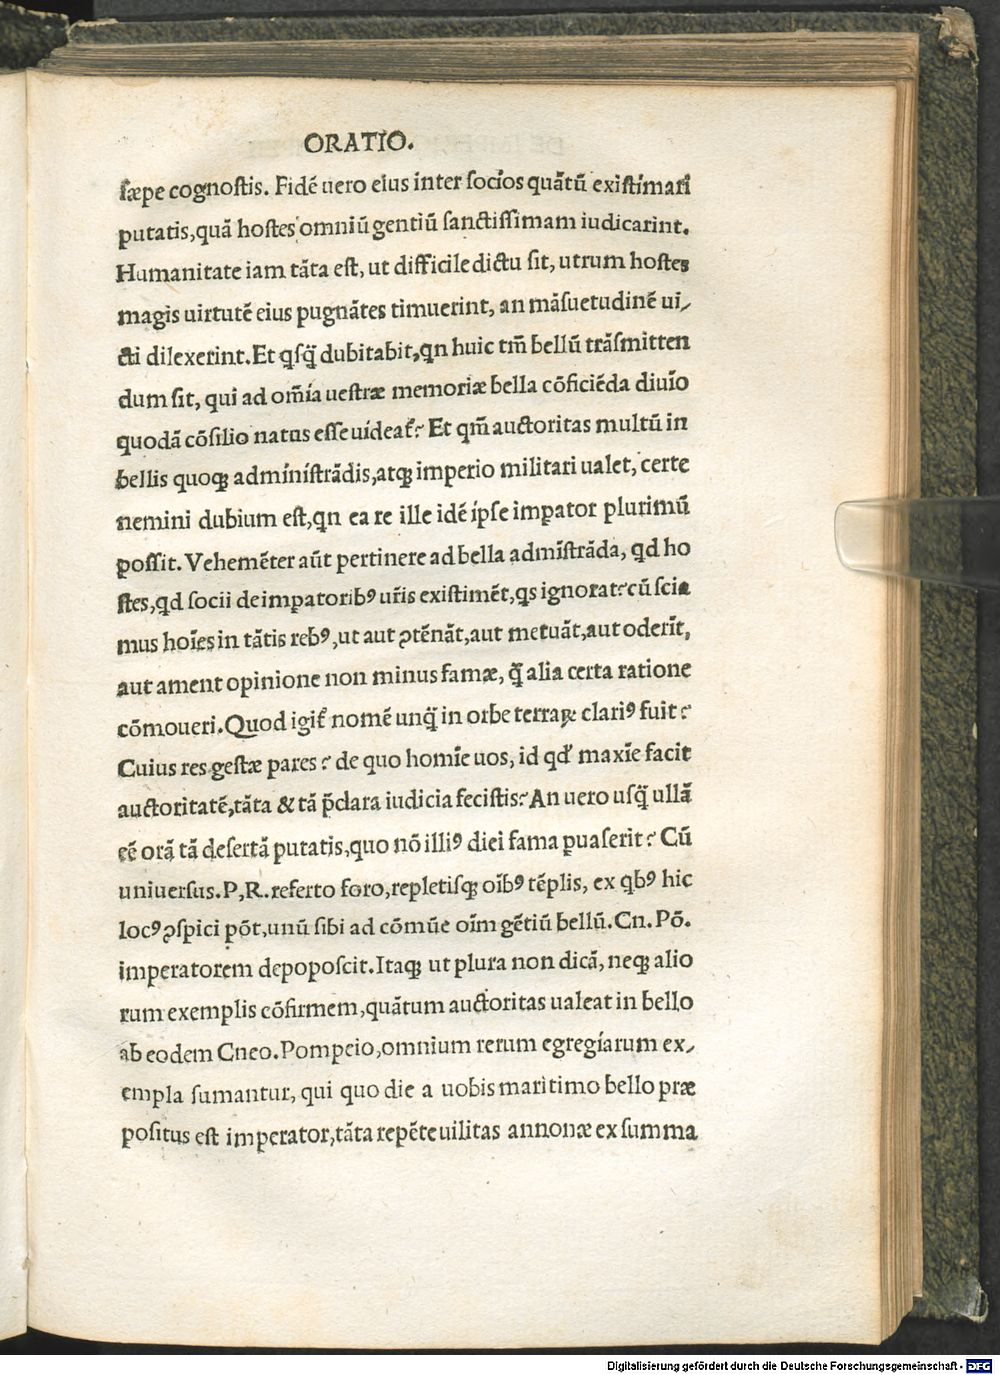 ORATIO.
sæpe cognostis. Fidē uero eius inter socios quātū existimari
putatis,quā hostes omniū gentiū sanctissimam iudicarint.
Humanitate iam tāta est, ut difficile dictu sit, utrum hostes
magis uirtutē eius pugnātes timuerint, an māsuetudinē ui⸗
cti dilexerint.Et qsq̃ dubitabit,qn huic tm̄ bellū trāsmitten
dum sit, qui ad om̄ia uestræ memoriæ bella cōficiēda diuīo
quodā cōsilio natus esse uideat᷑? Et qm̄ auctoritas multū in
bellis quoqꝫ administrādis,atqꝫ imperio militari ualet, certe
nemini dubium est,qn ea re ille idē ipse impator plurimū
possit. Vehemēter aūt pertinere ad bella admīstrāda, qd ho
stes,qd socii de impatoribꝰ ur̄is existimēt,qs ignorat?cū scia
mus hoīes in tātis rebꝰ,ut aut ꝯtēnāt,aut metuāt,aut oderīt,
aut ament opinione non minus famæ, q̃ alia certa ratione
cōmoueri.Quod igit᷑ nomē unq̃ in orbe terraꝝ clariꝰ fuit?
Cuius res gestæ pares? de quo homīe uos, id qd᷑ maxīe facit
auctoritatē,tāta & tā p̄clara iudicia fecistis?An uero usq̃ ullā
eē orā tā desertā putatis,quo nō illiꝰ diei fama ꝑuaserit? Cū
uniuersus.P,R.referto foro,repletisqꝫ oībꝰ tēplis, ex qbꝰ hic
locꝰ ꝯspici pōt,unū sibi ad cōmūe oīm gētiū bellū.Cn.Pō.
imperatorem depoposcit.Itaqꝫ ut plura non dicā, neqꝫ alio
rum exemplis cōfirmem,quātum auctoritas ualeat in bello
ab eodem Cneo.Pompeio,omnium rerum egregiarum ex⸗
empla sumantur, qui quo die a uobis maritimo bello præ
positus est imperator,tāta repēte uilitas annonæ ex summa
Digitalisierung gefördert durch die Deutsche Forschungsgemeinschaft - DFG